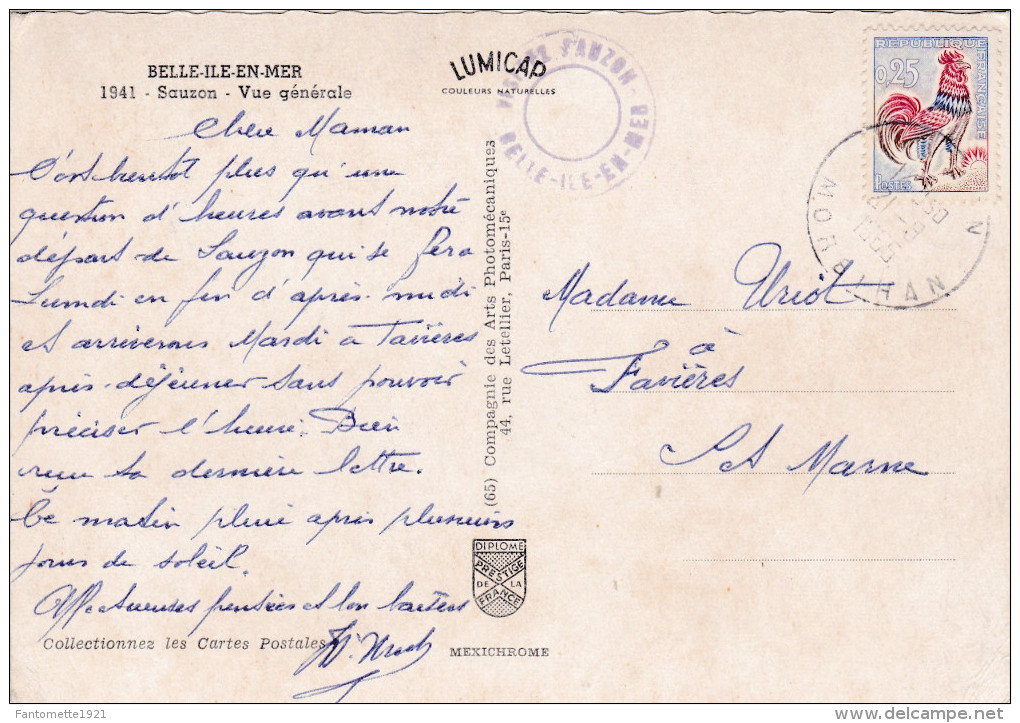 BELLE-ILE-EN-MER
1941 - Sauzon - Vue générale
Chère Maman
plus qu'une
question d'heures avant notre
départ de Sauzon qui se fera
Lundi en fin d'après-midi
et arriverons Mardi à Favières
après-déjeuner sans pouvoir
préciser l'heure. Bien
reçu ta dernière lettre.
Ce matin pluie après plusieurs
jours de soleil.
Affectueuses pensées et bon baisers
Collectionnez les Cartes Postales
LUMICAP
COULEURS NATURELLES
SAUZON - BELLE-ILE-EN-MER
(65) Compagnie des Arts Photomécaniques
44, rue Letellier, Paris-15e
DIPLOME
PRESTIGE
DE LA
FRANCE
MEXICHROME
REPUBLIQUE FRANÇAISE
0,25
POSTES
MORBIHAN
Madame Uriot
à
Favières
S et Marne
Fantomette1921
delcampe.net